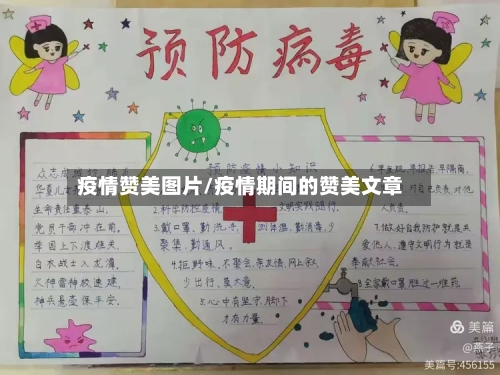 预防病毒
疫情赞美图片/疫情期间的赞美文章
预防疫情小知识
2.科学防控疫情
文明实践随行.
3.戴口罩,勤洗手,测体温,勤消毒,少
聚集,勤通风。
4.拒野味,不聚会,亲友情,网上叙,
少出行,莫大意.
5.心中有坚守,脚下
才有力量.
华夏儿
生命责任重泰山.
党员干部冲在前,
举国上下渡难关
白衣战士入龙潭,
火神雷神极速建,
神兵易壶保平安.
负责.
7.做好自我防护就是关
爱他人,遵守文明行为就是
奉献社会.
8.全家戴口罩胜过一堆药.
美篇
@燕子
美篇号:456155